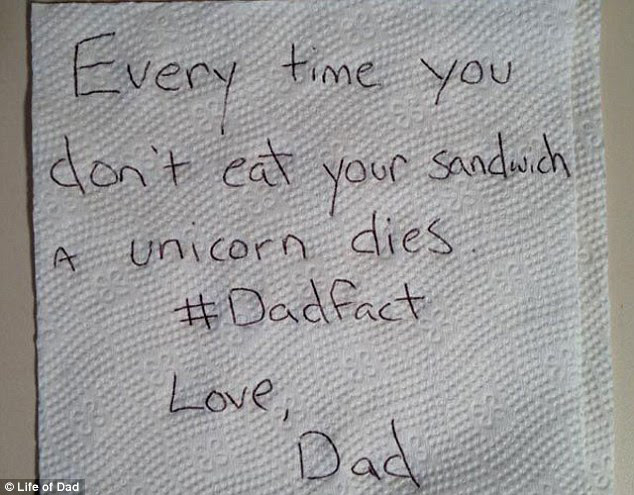 Every time you
don't eat your sandwich
A unicorn dies.
#Dadfact
Love,
Dad
© Life of Dad